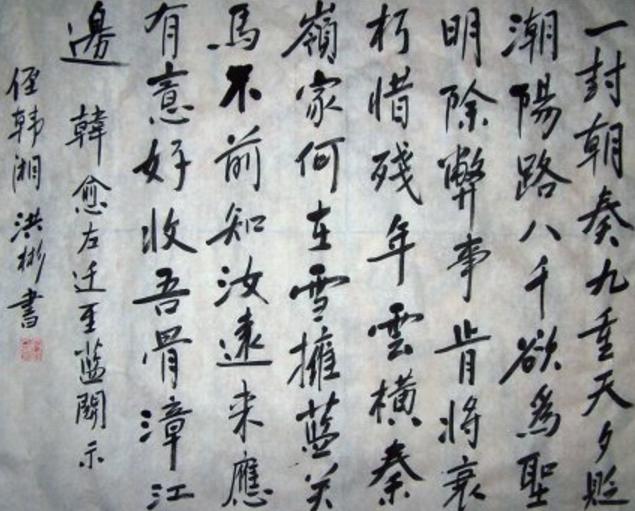 一封朝奏九重天夕貶
潮陽路八千欲為聖
明除弊事肯將衰
朽惜殘年雲橫秦
嶺家何在雪擁蓝关
馬不前知汝遠来應
有意好收吾骨漳江
邊
韓愈左迁至蓝關示
侄韩湘 洪彬書